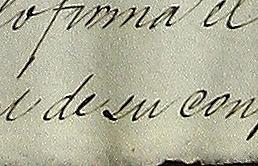 lo firma el
de su con